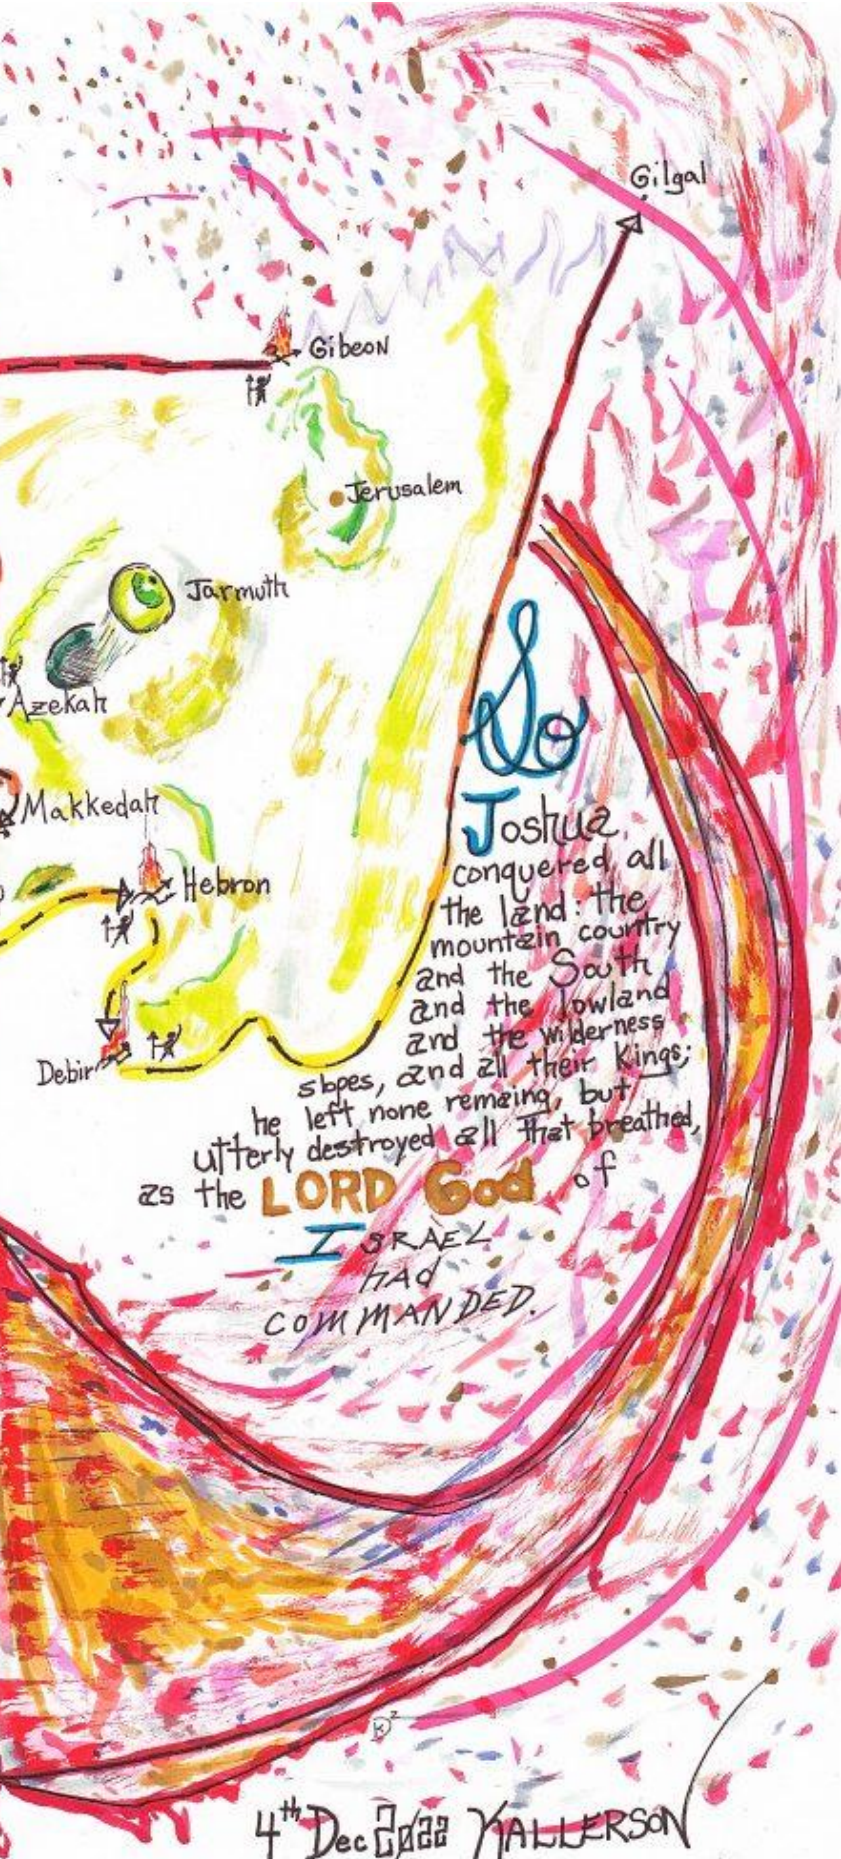 Gilgal
Gibeon
Jerusalem
Jarmuth
Azekah
Makkedah
Hebron
Debir
So
Joshua
conquered all
the land: the
mountain country
and the South
and the lowland
and the wilderness
slopes, and all their Kings;
he left none remaing, but
utterly destroyed all that breathed,
as the LORD God of
ISRAEL
HAd
COMMANDED.
4th Dec 2022 KALLERSON